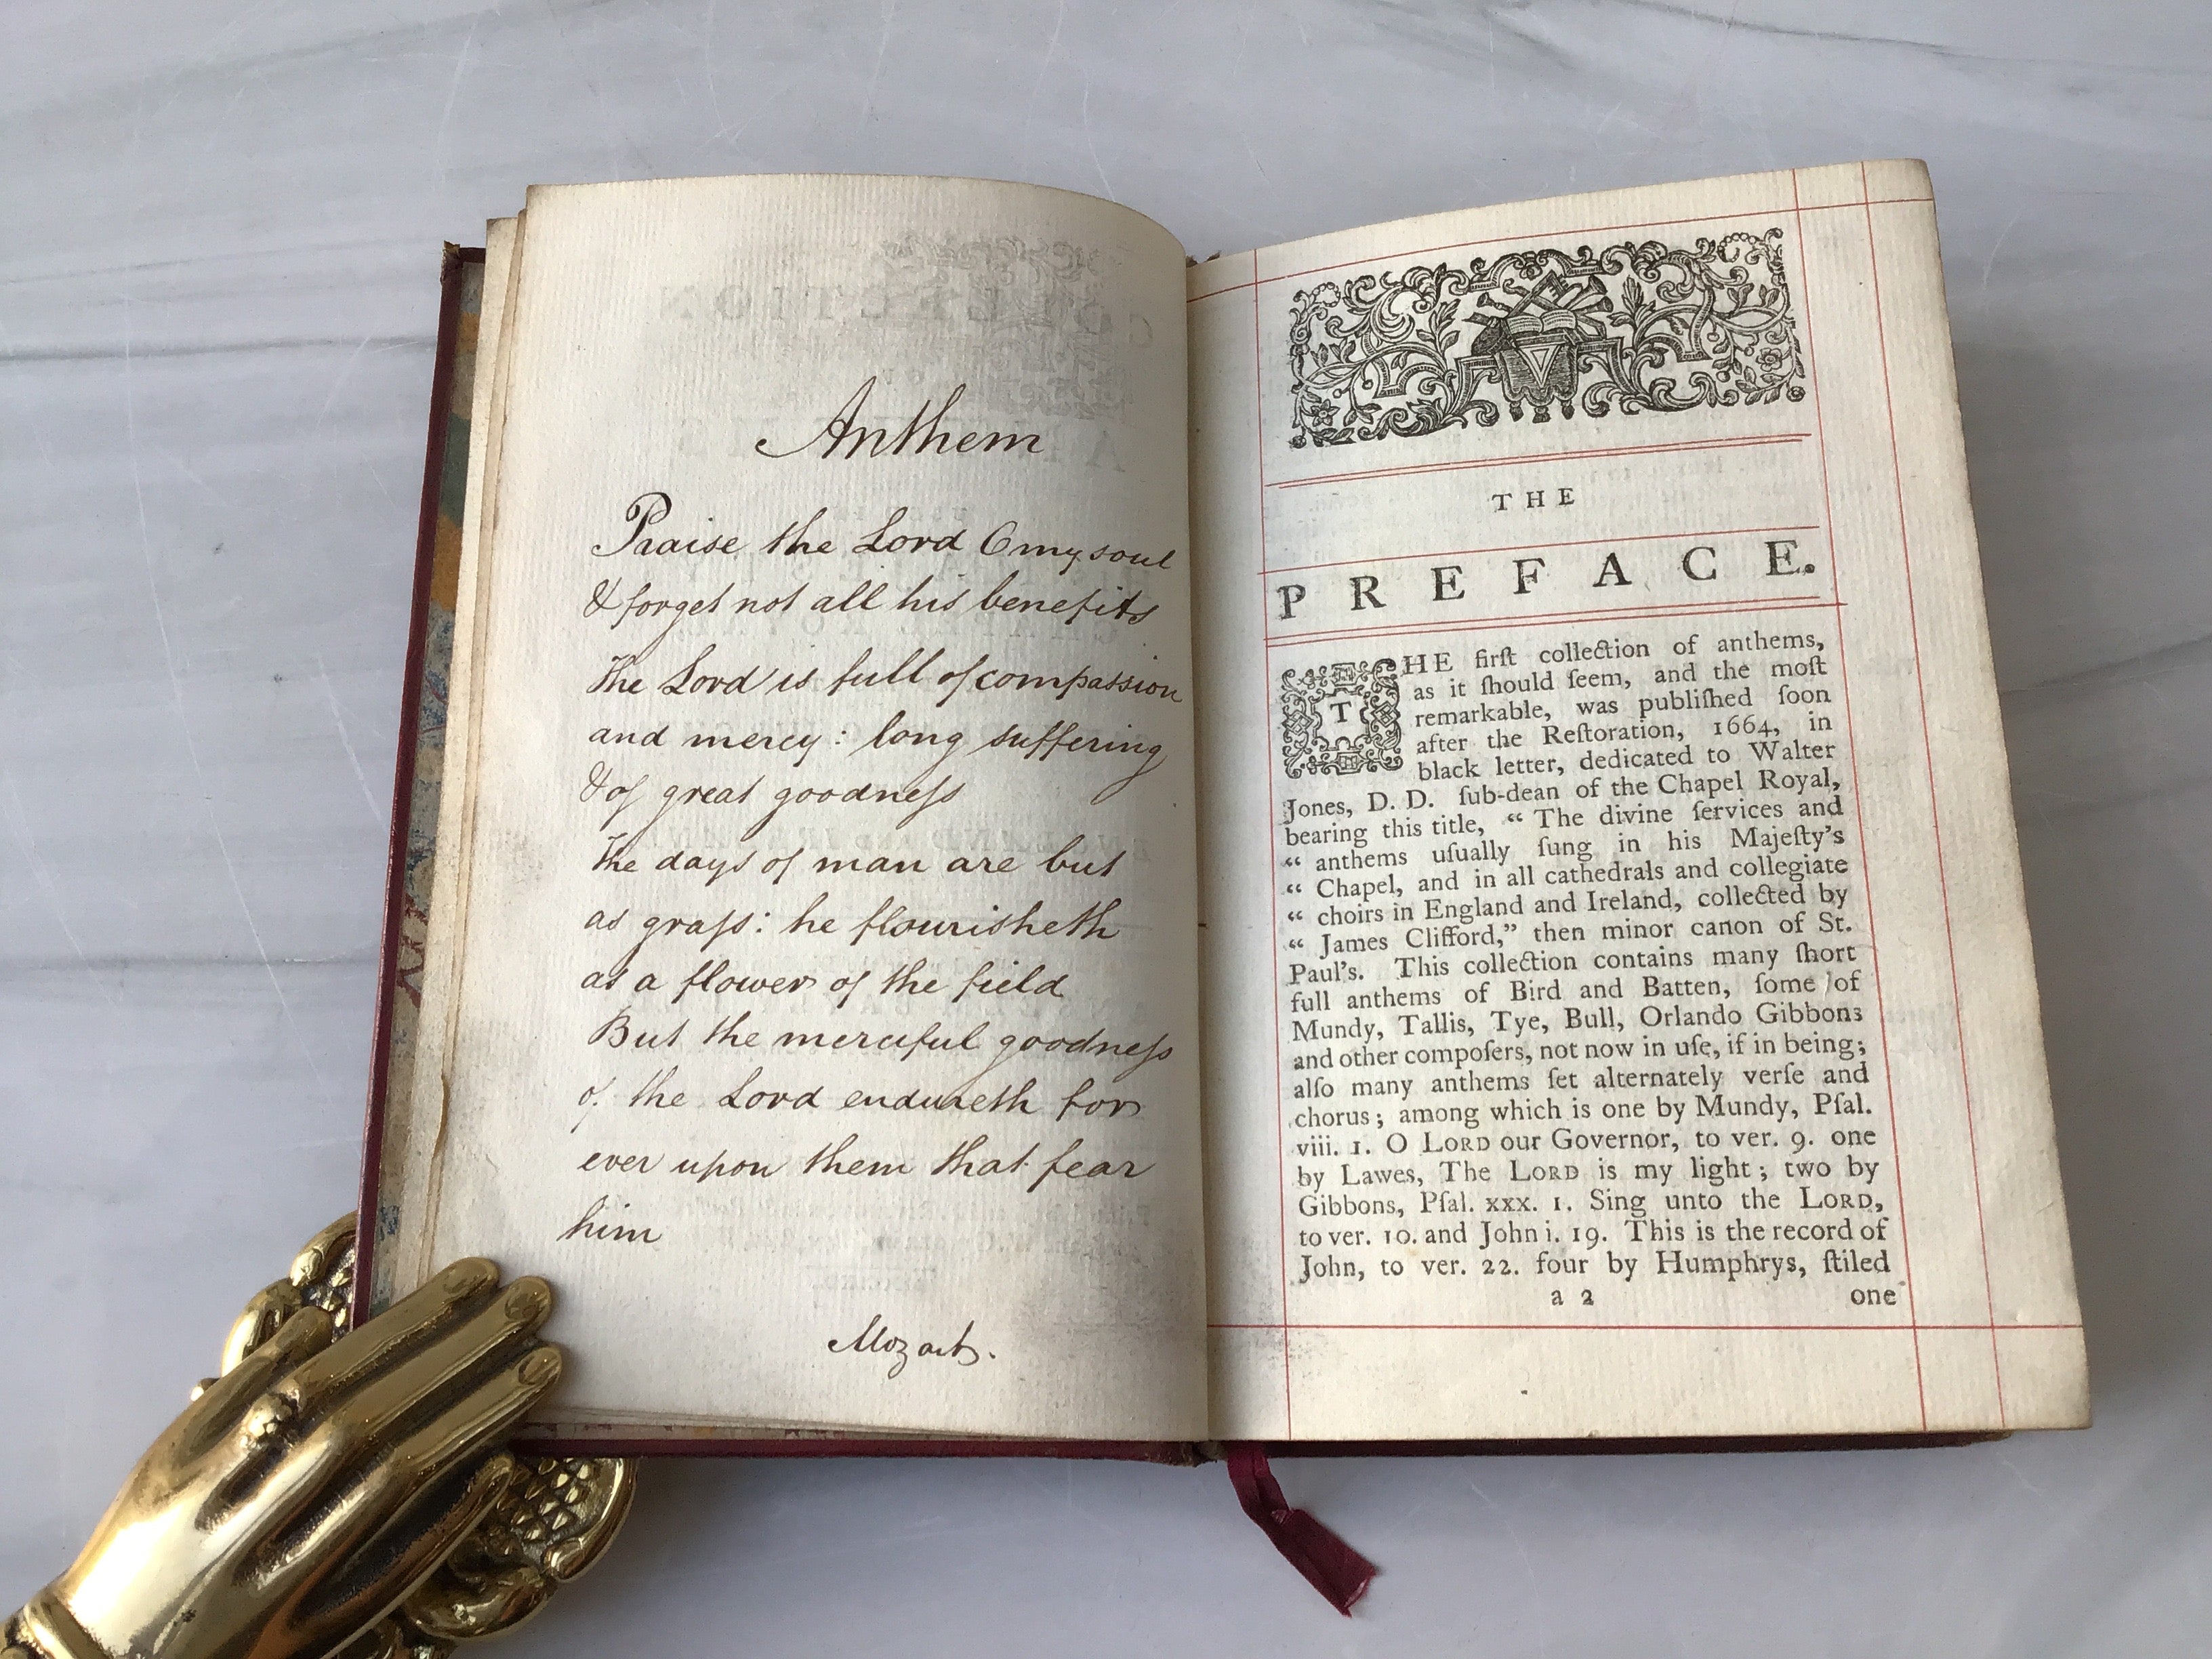 Anthem
Praise the Lord O my soul
& forget not all his benefits
The Lord is full of compassion
and mercy: long suffering
& of great goodneſs
The days of man are but
as graſs: he flourisheth
as a flower of the field
But the merciful goodneſs
of the Lord endureth for
ever upon them that fear
him
Mozart.
THE
PREFACE.
THE firſt collection of anthems,
as it ſhould ſeem, and the moſt
remarkable, was publiſhed ſoon
after the Reſtoration, 1664, in
black letter, dedicated to Walter
Jones, D. D. ſub-dean of the Chapel Royal,
bearing this title, “ The divine ſervices and
“ anthems uſually ſung in his Majeſty’s
“ Chapel, and in all cathedrals and collegiate
“ choirs in England and Ireland, collected by
“ James Clifford,” then minor canon of St.
Paul’s. This collection contains many ſhort
full anthems of Bird and Batten, ſome of
Mundy, Tallis, Tye, Bull, Orlando Gibbons
and other compoſers, not now in uſe, if in being;
alſo many anthems ſet alternately verſe and
chorus; among which is one by Mundy, Pſal.
viii. 1. O LORD our Governor, to ver. 9. one
by Lawes, The LORD is my light; two by
Gibbons, Pſal. xxx. 1. Sing unto the LORD,
to ver. 10. and John i. 19. This is the record of
John, to ver. 22. four by Humphrys, ſtiled
a 2 one